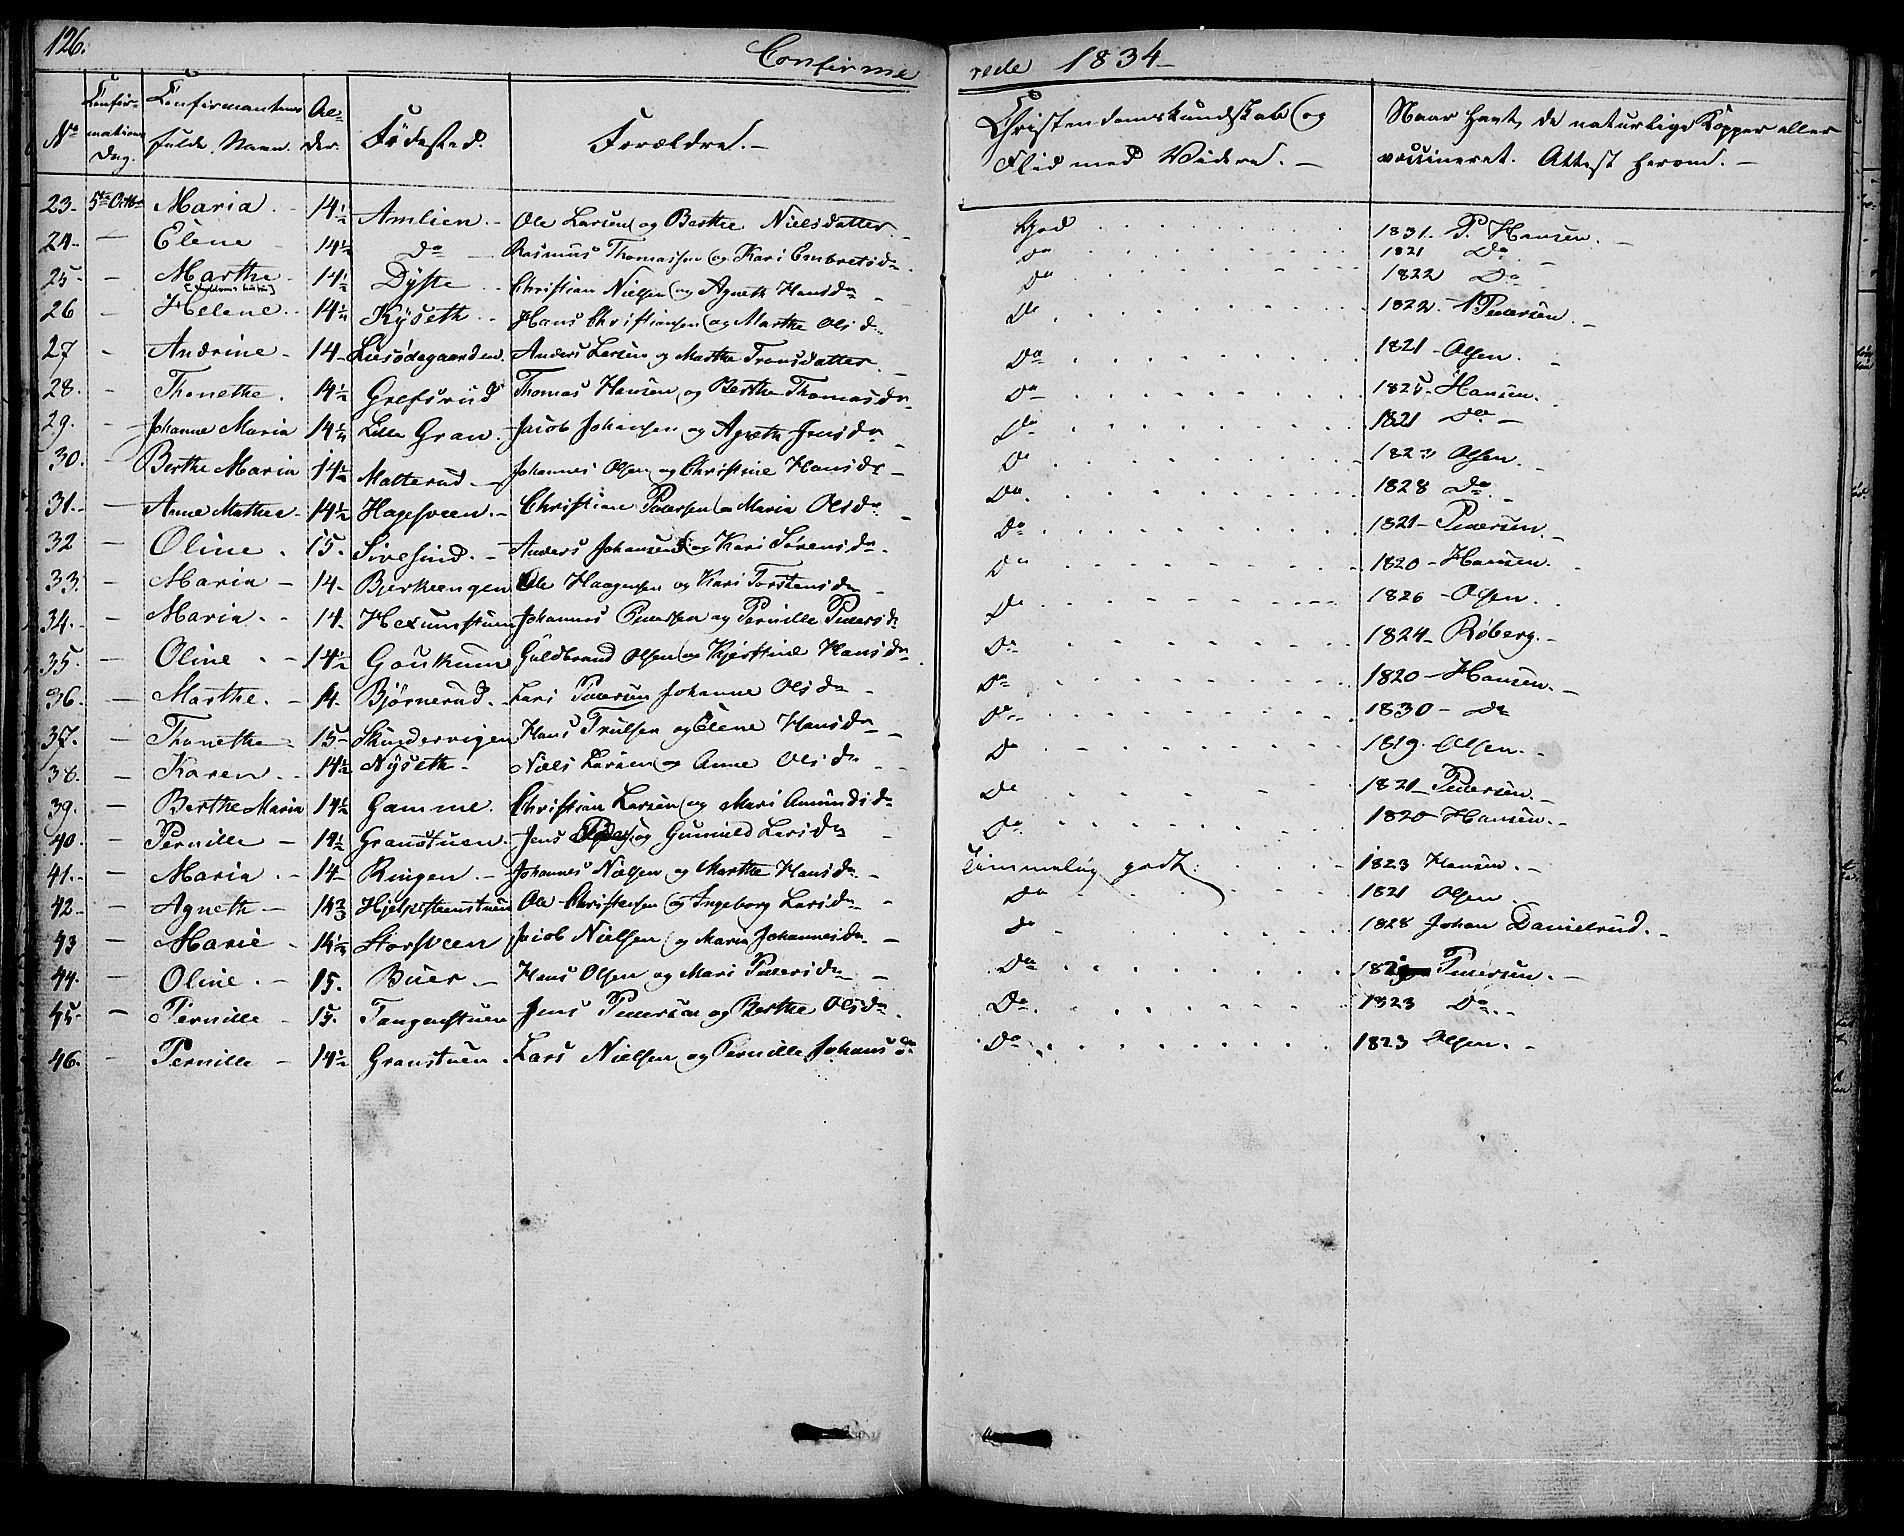 126.
Confirme rede 1834
No Confirmations Dag. Confirmantens fulde Navn. Alder. Fødested. Forældre. Christendomskundskab og Flid med Videre. Naar havt de naturlige Kopper eller vaccineret. Attest herom.
23 5te Octbr Maria 14½ Amlien Ole Larsen og Berthe Nielsdatter God 1831 P. Hansen.
24 — Elene 14½ Do Rasmus Thomassen og Kari Embretsdr Do 1821 Do
25 — Marthe 14½ Dyste Christian Nielsen og Agneth Hansdr Do 1822 Do
26 — Helene 14¼ Kyseth Hans Christiansen og Marthe Olsd Do 1822 Pedersen.
27 — Andrine 14 Anders Larsen og Marthe Tronsdatter Do 1821 Olsen.
28. — Thonethe 14½ Grefsrud Thomas Hansen og Berthe Thomasdr Do 1825 Hansen.
29. — Johanne Maria 14¼ Lille Gran Jacob Johansen og Agneth Jensdr Do 1821 Do
30. — Berthe Maria 14½ Malterud Johannes Olsen og Christine Hansdr Do 1823 Olsen.
31. — Anne Mathea 14½ Hagesveen Christian Pedersen og Maria Olsdr Do 1828 Do
32 — Oline 15. Sivesind Anders Johansen og Kari Sørensdr Do 1821 Pedersen.
33. — Maria 14 Bjerkeengen Ole Haagensen og Kari Torstensdr Do 1820 Hansen
34. — Maria 14 Hexumstuen Johannes Pedersen og Pernille Pedersdr Do 1826 Olsen.
35. — Oline 14½ Goukum Guldbrand Olsen og Kjerstine Hansdr Do 1824 Røberg.
36. — Marthe 14 Bjørnerud Lars Pedersen Johanne Olsdr Do 1820 Hansen.
37. — Thonethe 15 Skundervigen Hans Trulsen og Elene Hansdr Do 1830 Do
38. — Karen 14½ Nyseth Niels Larsen og Anne Olsdr Do 1819 Olsen.
39. — Berthe Maria 14½ Gamme Christian Larsen og Mari Amundsdr Do 1821 Pedersen.
40. — Pernille 14½ Granstuen Jens og Gunnild Larsdr Do 1820 Hansen.
41. — Maria 14 Ringen Johannes Nielsen og Marthe Hansdr Temmelig godt 1823 Hansen.
42 — Agneth 14⅔ Hjelpesteenstuen Ole Christensen og Ingeborg Larsdr Do 1821 Olsen
43 — Marie 14½ Storsveen Jacob Nielsen og Maria Johannesdr Do 1828 Johan Danielsrud.
44. — Oline 15. Buer Hans Olsen og Mari Pedersdr Do Pedersen.
45. — Pernille 15. Tangenstuen Jens Pedersen og Berthe Olsdr Do 1823 Do
46. Pernille 14½ Granstuen Lars Nielsen og Pernille Johansdr Do 1823 Olsen.